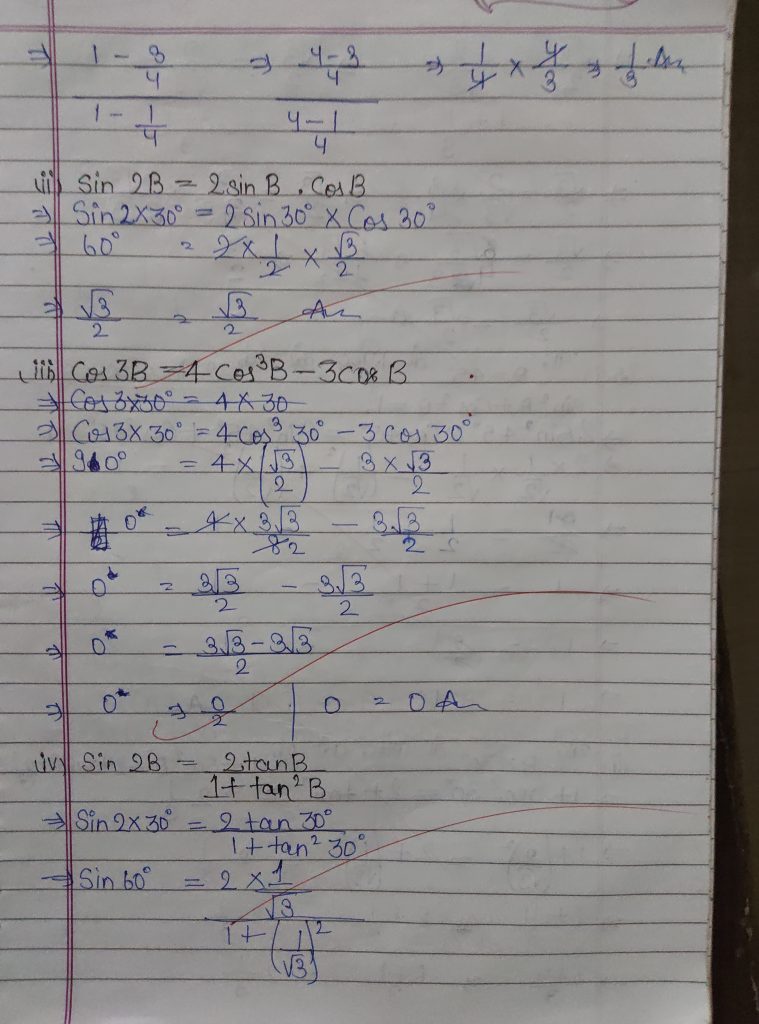 ⇒ (1 - 3/4)/(1 - 1/4) ⇒ ((4-3)/4)/((4-1)/4) ⇒ 1/4 × 4/3 ⇒ 1/3 . Ans
(ii) Sin 2B = 2 sin B . Cos B
⇒ Sin 2×30° = 2 Sin 30° × Cos 30°
⇒ 60° = 2 × 1/2 × √3/2
⇒ √3/2 = √3/2 Ans
(iii) Cos 3B = 4 Cos³B - 3 cos B
⇒ Cos 3×30° = 4 × 30
⇒ Cos 3×30° = 4 Cos³ 30° - 3 Cos 30°
⇒ 90° = 4 × (√3/2) - 3 × √3/2
⇒ 0 = 4 × 3√3/82 - 3√3/2
⇒ 0 = 3√3/2 - 3√3/2
⇒ 0 = (3√3 - 3√3)/2
⇒ 0 ⇒ 0/2 | 0 = 0 Ans
(iv) Sin 2B = 2 tan B/(1 + tan²B)
⇒ Sin 2×30° = 2 tan 30°/(1 + tan² 30°)
⇒ Sin 60° = (2 × 1/√3)/(1 + (1/√3)²)